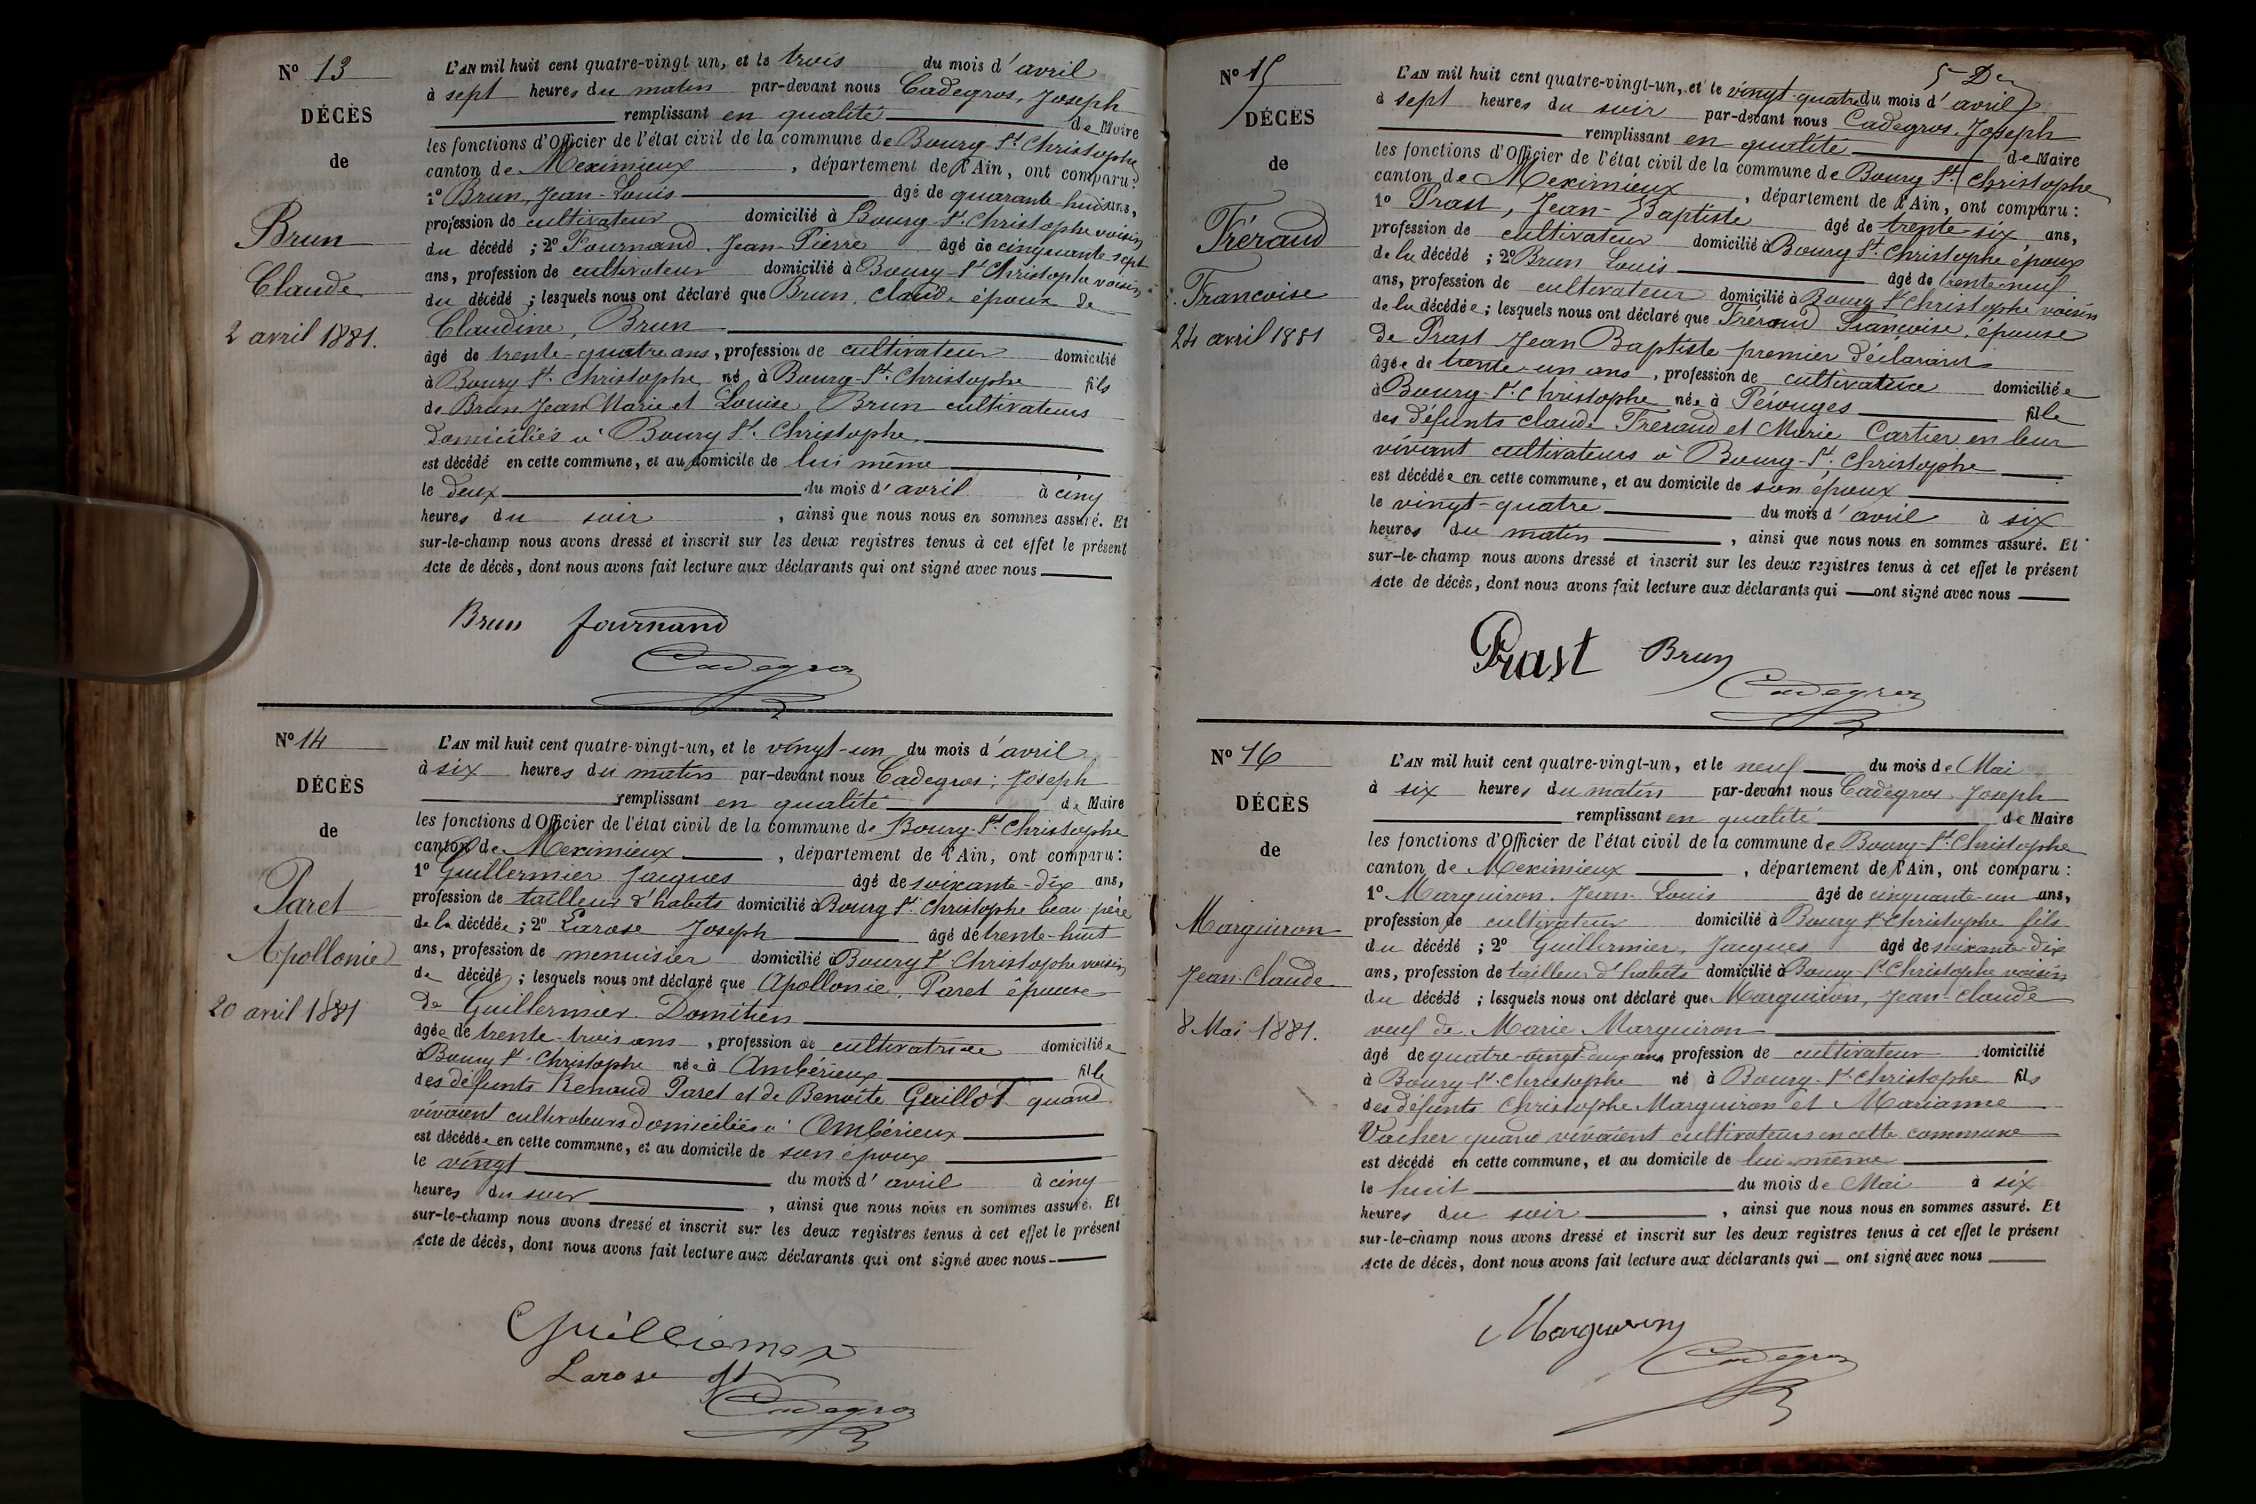 No 13
DÉCÈS
de
Brun
Claude
2 avril 1881.
L'AN mil huit cent quatre-vingt un, et le trois du mois d'avril
à sept heures du matin par-devant nous Cadegros, Joseph
remplissant en qualité de Maire
les fonctions d'Officier de l'état civil de la commune de Bourg-St-Christophe
canton de Meximieux, département de l'Ain, ont comparu:
1o Brun, Jean-Louis âgé de quarante-huit ans,
profession de cultivateur domicilié à Bourg-St-Christophe voisin
du décédé ; 2o Fournand, Jean-Pierre âgé de cinquante-sept
ans, profession de cultivateur domicilié à Bourg-St-Christophe voisin
du décédé ; lesquels nous ont déclaré que Brun, Claude époux de
Claudine, Brun
âgé de trente-quatre ans, profession de cultivateur domicilié
à Bourg St. Christophe né à Bourg-St. Christophe fils
de Brun Jean Marie et Louise Brun cultivateurs
domiciliés à Bourg St. Christophe,
est décédé en cette commune, et au domicile de lui même
le deux du mois d'avril à cinq
heures du soir, ainsi que nous nous en sommes assuré. Et
sur-le-champ nous avons dressé et inscrit sur les deux registres tenus à cet effet le présent
Acte de décès, dont nous avons fait lecture aux déclarants qui ont signé avec nous
Brun fournand
Cadegros
No 14
DÉCÈS
de
Paret
Apollonie
20 avril 1881
L'AN mil huit cent quatre-vingt-un, et le vingt-un du mois d'avril
à six heures du matin par-devant nous Cadegros, Joseph
remplissant en qualité de Maire
les fonctions d'Officier de l'état civil de la commune de Bourg-St-Christophe
canton de Meximieux, département de l'Ain, ont comparu:
1o Guillermier Jacques âgé de soixante-dix ans,
profession de tailleur d'habits domicilié à Bourg St Christophe beau-père
de la décédée ; 2o Larose Joseph âgé de trente-huit
ans, profession de menuisier domicilié à Bourg St Christophe voisin
de décédé ; lesquels nous ont déclaré que Apollonie, Paret épouse
de Guillermier Domitien
âgée de trente-trois ans, profession de cultivatrice domiciliée
à Bourg St. Christophe née à Ambérieux fille
des défunts Renaud Paret et de Benoite Guillot quand
vivaient cultivateurs domiciliés à Ambérieux
est décédée en cette commune, et au domicile de son époux
le vingt du mois d'avril à cinq
heures du soir, ainsi que nous nous en sommes assuré. Et
sur-le-champ nous avons dressé et inscrit sur les deux registres tenus à cet effet le présent
Acte de décès, dont nous avons fait lecture aux déclarants qui ont signé avec nous
Guilliermer
Larose
Cadegros
5 De
No 15
DÉCÈS
de
Fréraud
Francoise
24 avril 1881
L'AN mil huit cent quatre-vingt-un, et le vingt-quatre du mois d'avril
à sept heures du soir par-devant nous Cadegros, Joseph
remplissant en qualité de Maire
les fonctions d'Officier de l'état civil de la commune de Bourg St. Christophe
canton de Meximieux, département de l'Ain, ont comparu:
1o Prast, Jean-Baptiste âgé de trente six ans,
profession de cultivateur domicilié à Bourg St. Christophe époux
de la décédé ; 2o Brun Louis âgé de trente-neuf
ans, profession de cultivateur domicilié à Bourg St Christophe voisin
de la décédée ; lesquels nous ont déclaré que Fréraud Françoise, épouse
de Prast Jean Baptiste premier déclarant
âgée de trente-un ans, profession de cultivatrice domiciliée
à Bourg-St. Christophe née à Pérouges fille
des défunts Claude Freraud et Marie Cartier en leur
vivant cultivateurs à Bourg-St. Christophe
est décédée en cette commune, et au domicile de son époux
le vingt-quatre du mois d'avril à six
heures du matin, ainsi que nous nous en sommes assuré. Et
sur-le-champ nous avons dressé et inscrit sur les deux registres tenus à cet effet le présent
Acte de décès, dont nous avons fait lecture aux déclarants qui ont signé avec nous
Prast Brun
Cadegros
No 16
DÉCÈS
de
Marguiron
Jean-Claude
8 Mai 1881.
L'AN mil huit cent quatre-vingt-un, et le neuf du mois de Mai
à six heures du matin par-devant nous Cadegros, Joseph
remplissant en qualité de Maire
les fonctions d'Officier de l'état civil de la commune de Bourg-St-Christophe
canton de Meximieux, département de l'Ain, ont comparu:
1o Marguiron, Jean-Louis âgé de cinquante-un ans,
profession de cultivateur domicilié à Bourg St-Christophe fils
du décédé ; 2o Guillermier, Jacques âgé de soixante-dix
ans, profession de tailleur d'habits domicilié à Bourg St-Christophe voisin
du décédé ; lesquels nous ont déclaré que Marguiron, Jean-Claude
veuf de Marie Marguiron
âgé de quatre-vingt-deux ans profession de cultivateur domicilié
à Bourg-St. Christophe né à Bourg-St-Christophe fils
des défunts Christophe Marguiron et Marianne
Vacher quand vivaient cultivateurs en cette commune
est décédé en cette commune, et au domicile de lui-même
le huit du mois de Mai à six
heures du soir, ainsi que nous nous en sommes assuré. Et
sur-le-champ nous avons dressé et inscrit sur les deux registres tenus à cet effet le présent
Acte de décès, dont nous avons fait lecture aux déclarants qui ont signé avec nous
Marguiron
Cadegros